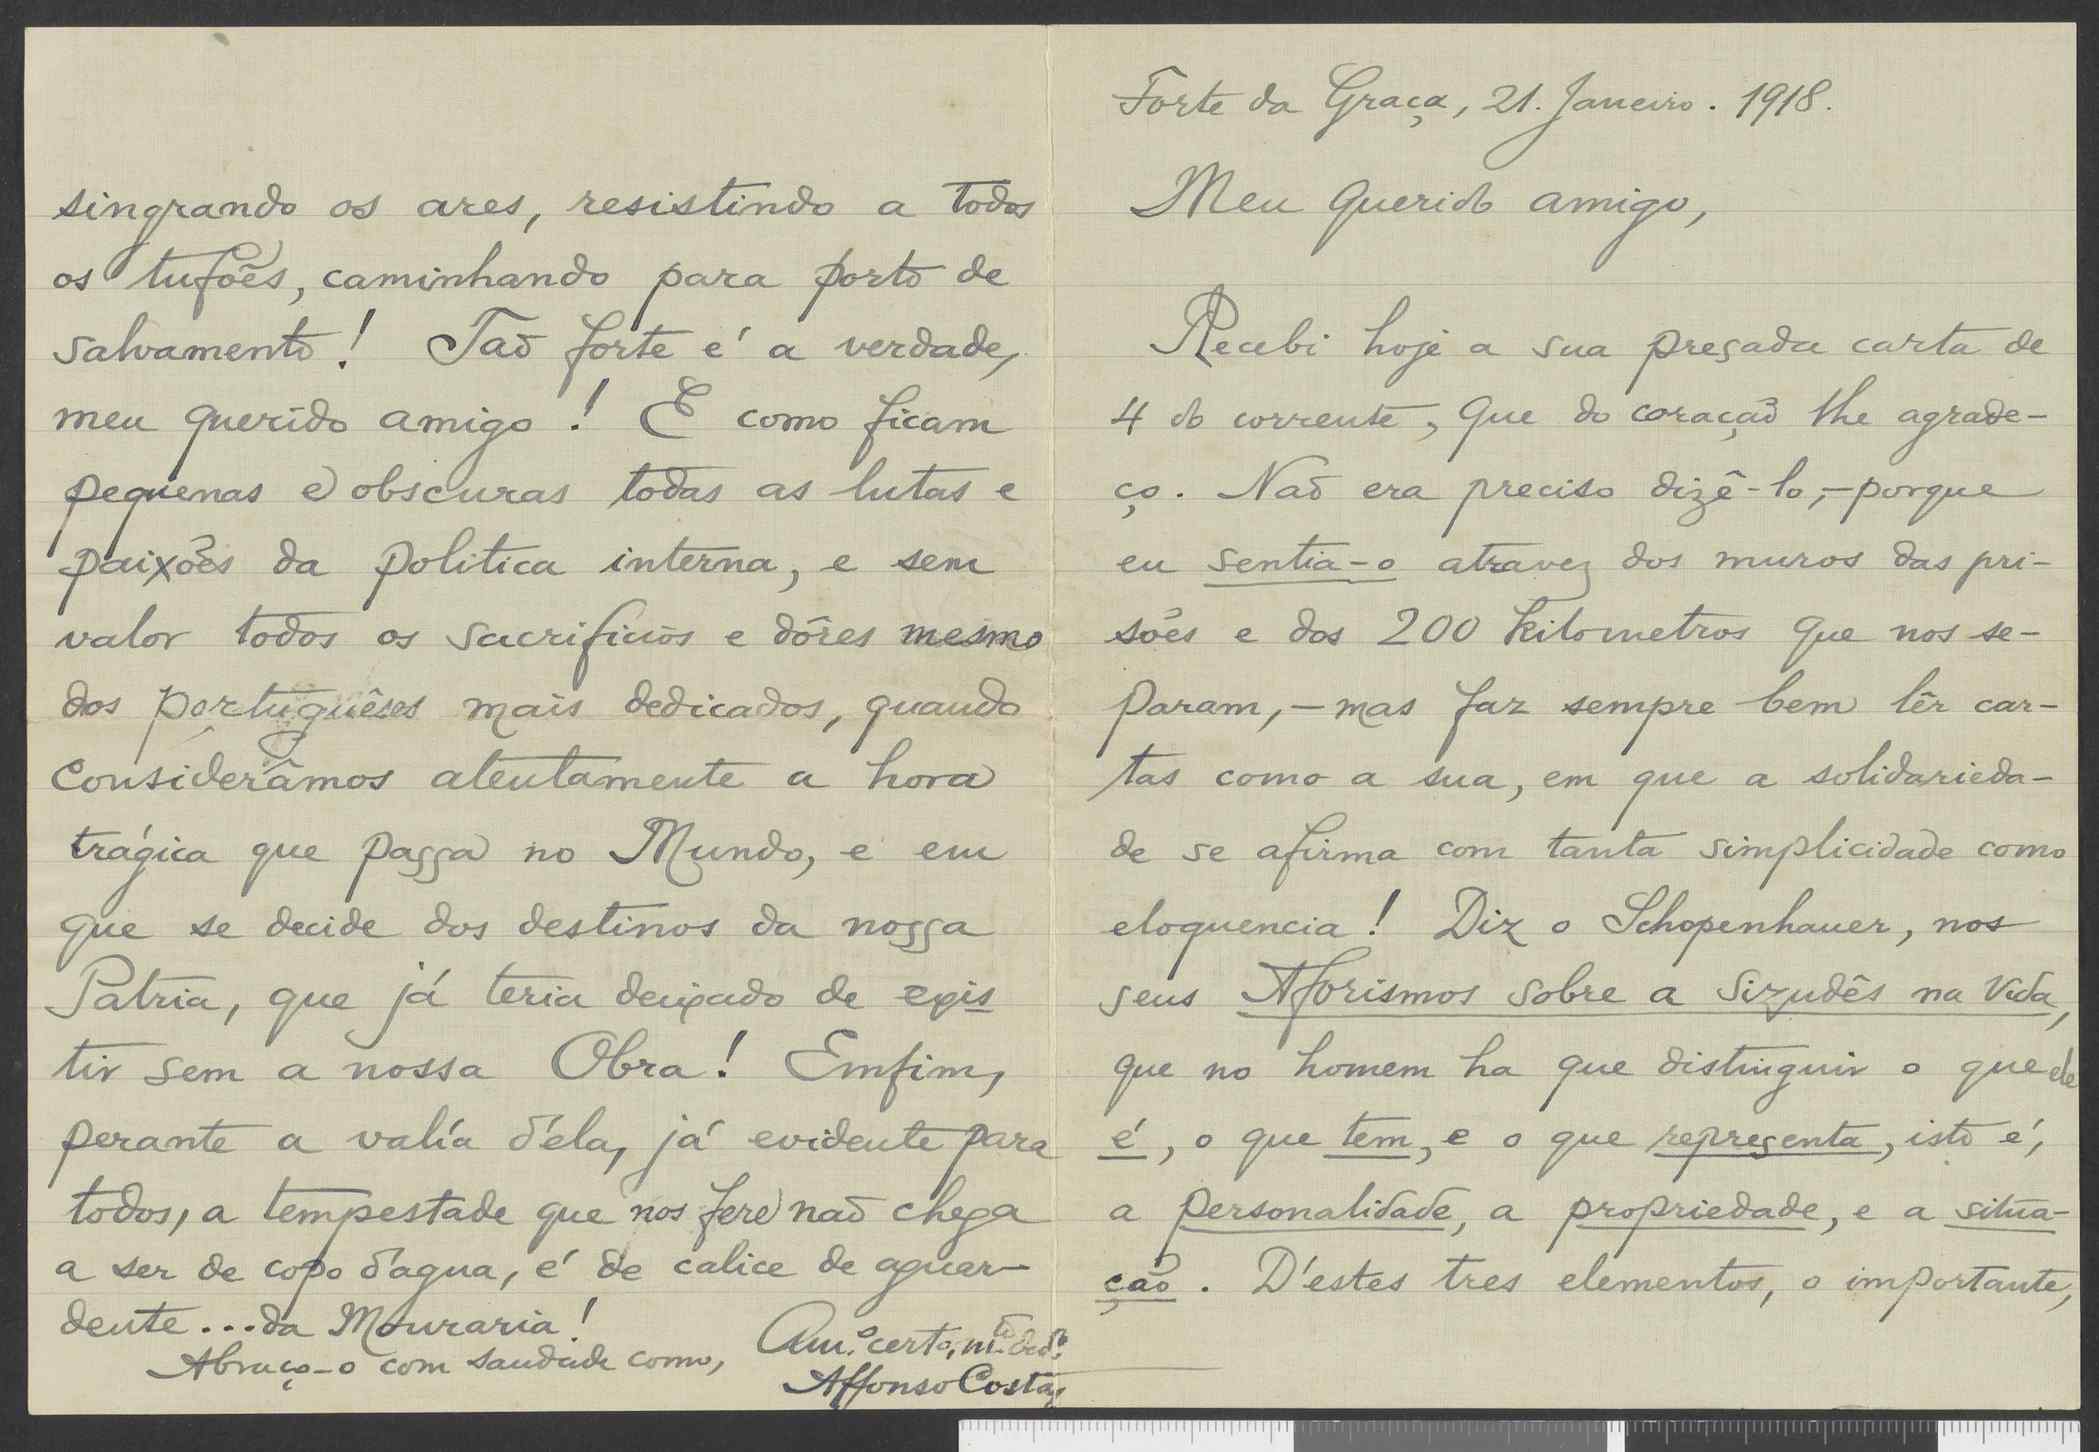 Forte da Graça, 21. Janeiro. 1918.
Meu querido amigo,
Recebi hoje a sua presada carta de
4 do corrente, que do coração lhe agrade-
ço. Não era preciso dizê-lo,-porque
eu sentia-o atravez dos muros das pri-
sões e dos 200 kilometros que nos se-
param,-mas faz sempre bem lêr car-
tas como a sua, em que a solidarieda-
de se afirma com tanta simplicidade como
eloquencia! Diz o Schopenhauer, nos
seus Aforismos sobre a Sizudês na Vida,
que no homem ha que distinguir o que ele
é, o que tem, e o que representa, isto é,
a personalidade, a propriedade, e a situa-
ção. D'estes tres elementos, o importante,
singrando os ares, resistindo a todos
os tufões, caminhando para porto de
salvamento! Tão forte é a verdade,
meu querido amigo! E como ficam
pequenas e obscuras todas as lutas e
paixões da politica interna, e sem
valor todos os sacrificios e dôres mesmo
dos portuguêses mais dedicados, quando
considerâmos atentamente a hora
trágica que passa no Mundo, e em
que se decide dos destinos da nossa
Patria, que já teria deixado de exis
tir sem a nossa Obra! Emfim,
perante a valía d'éla, já evidente para
todos, a tempestade que nos fere não chega
a ser de copo d'agua, é de calice de aguar-
dente...da Mouraria!
Abraço-o com saudade como,
Am.º certo, m.to ded.º
Affonso Costa